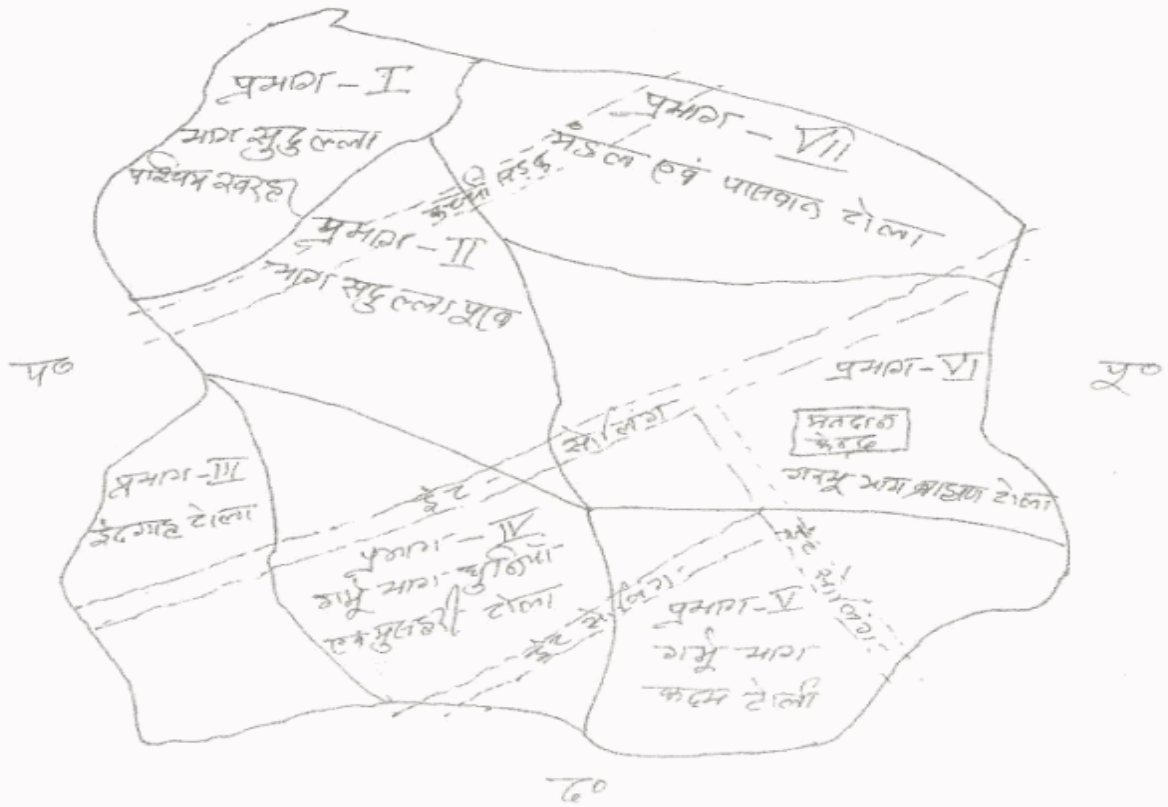 प्रभाग - I
भाग सुदुल्ला
पश्चिम खरहा
प्रभाग - VII
मंडल एवं पासवान टोला
कच्ची सड़क
प्रभाग - II
भाग सदुल्ला पूर्व
प०
पू०
प्रभाग - VI
मतदान
केन्द्र
गरमू भाग ब्राह्मण टोला
ईट सोलिंग
प्रभाग - III
ईदगाह टोला
प्रभाग - IV
गर्मू भाग धुनियाँ
एवं मुसहरी टोला
ईट सोलिंग
ईट सोलिंग
प्रभाग - V
गर्मू भाग
कदम टोली
द०